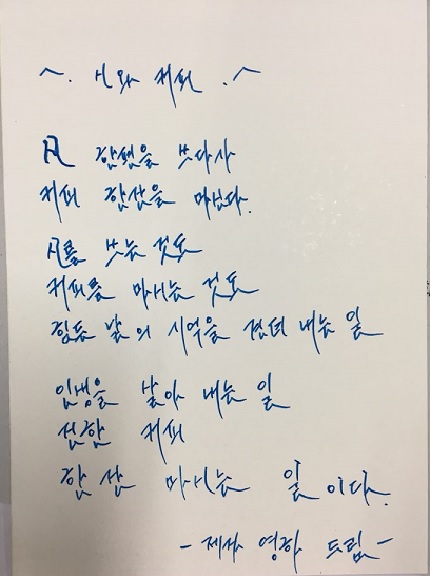 ^. 시와 커피 .^
시 한편을 쓰다가
커피 한잔을 마신다.
시를 쓰는 것도
커피를 마시는 것도
힘든 날의 기억을 견뎌 내는 일
인생을 살아 내는 일
진한 커피
한 잔 마시는 일이다.
- 제자 영하 드림 -